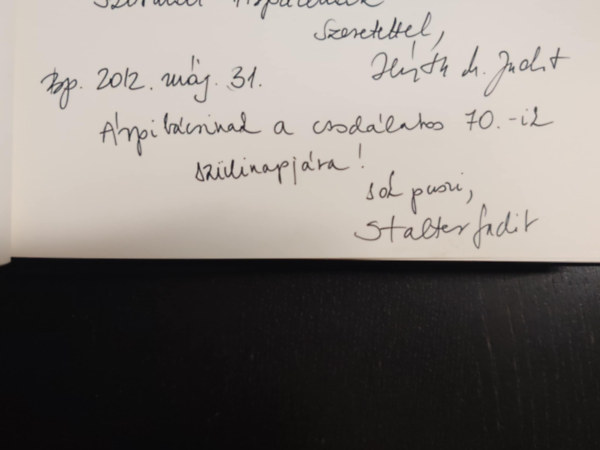 Szeretettel,
M. Judit
Bp. 2012. máj. 31.
Árpi bácsinak a csodálatos 70.-ik
szülinapjára!
sok puszi,
Stalter Judit